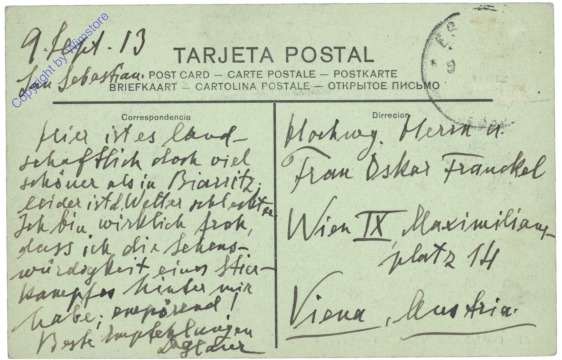 9. Sept. 13
San Sebastian.
Copyright by Wimstore
TARJETA POSTAL
POST CARD — CARTE POSTALE — POSTKARTE
BRIEFKAART — CARTOLINA POSTALE — ОТКРЫТОЕ ПИСЬМО
Correspondencia
Hier ist es land-
schaftlich doch viel
schöner als in Biarritz,
leider ist d. Wetter schlechter.
Ich bin wirklich froh,
dass ich die Sehens-
würdigkeit eines Stier-
kampfes hinter mir
habe; empörend!
Beste Empfehlungen
Dirrecion
Hochwg. Herrn u.
Frau Oskar Franckel
Wien IX Maximilians-
platz 14
Viena, Austria.